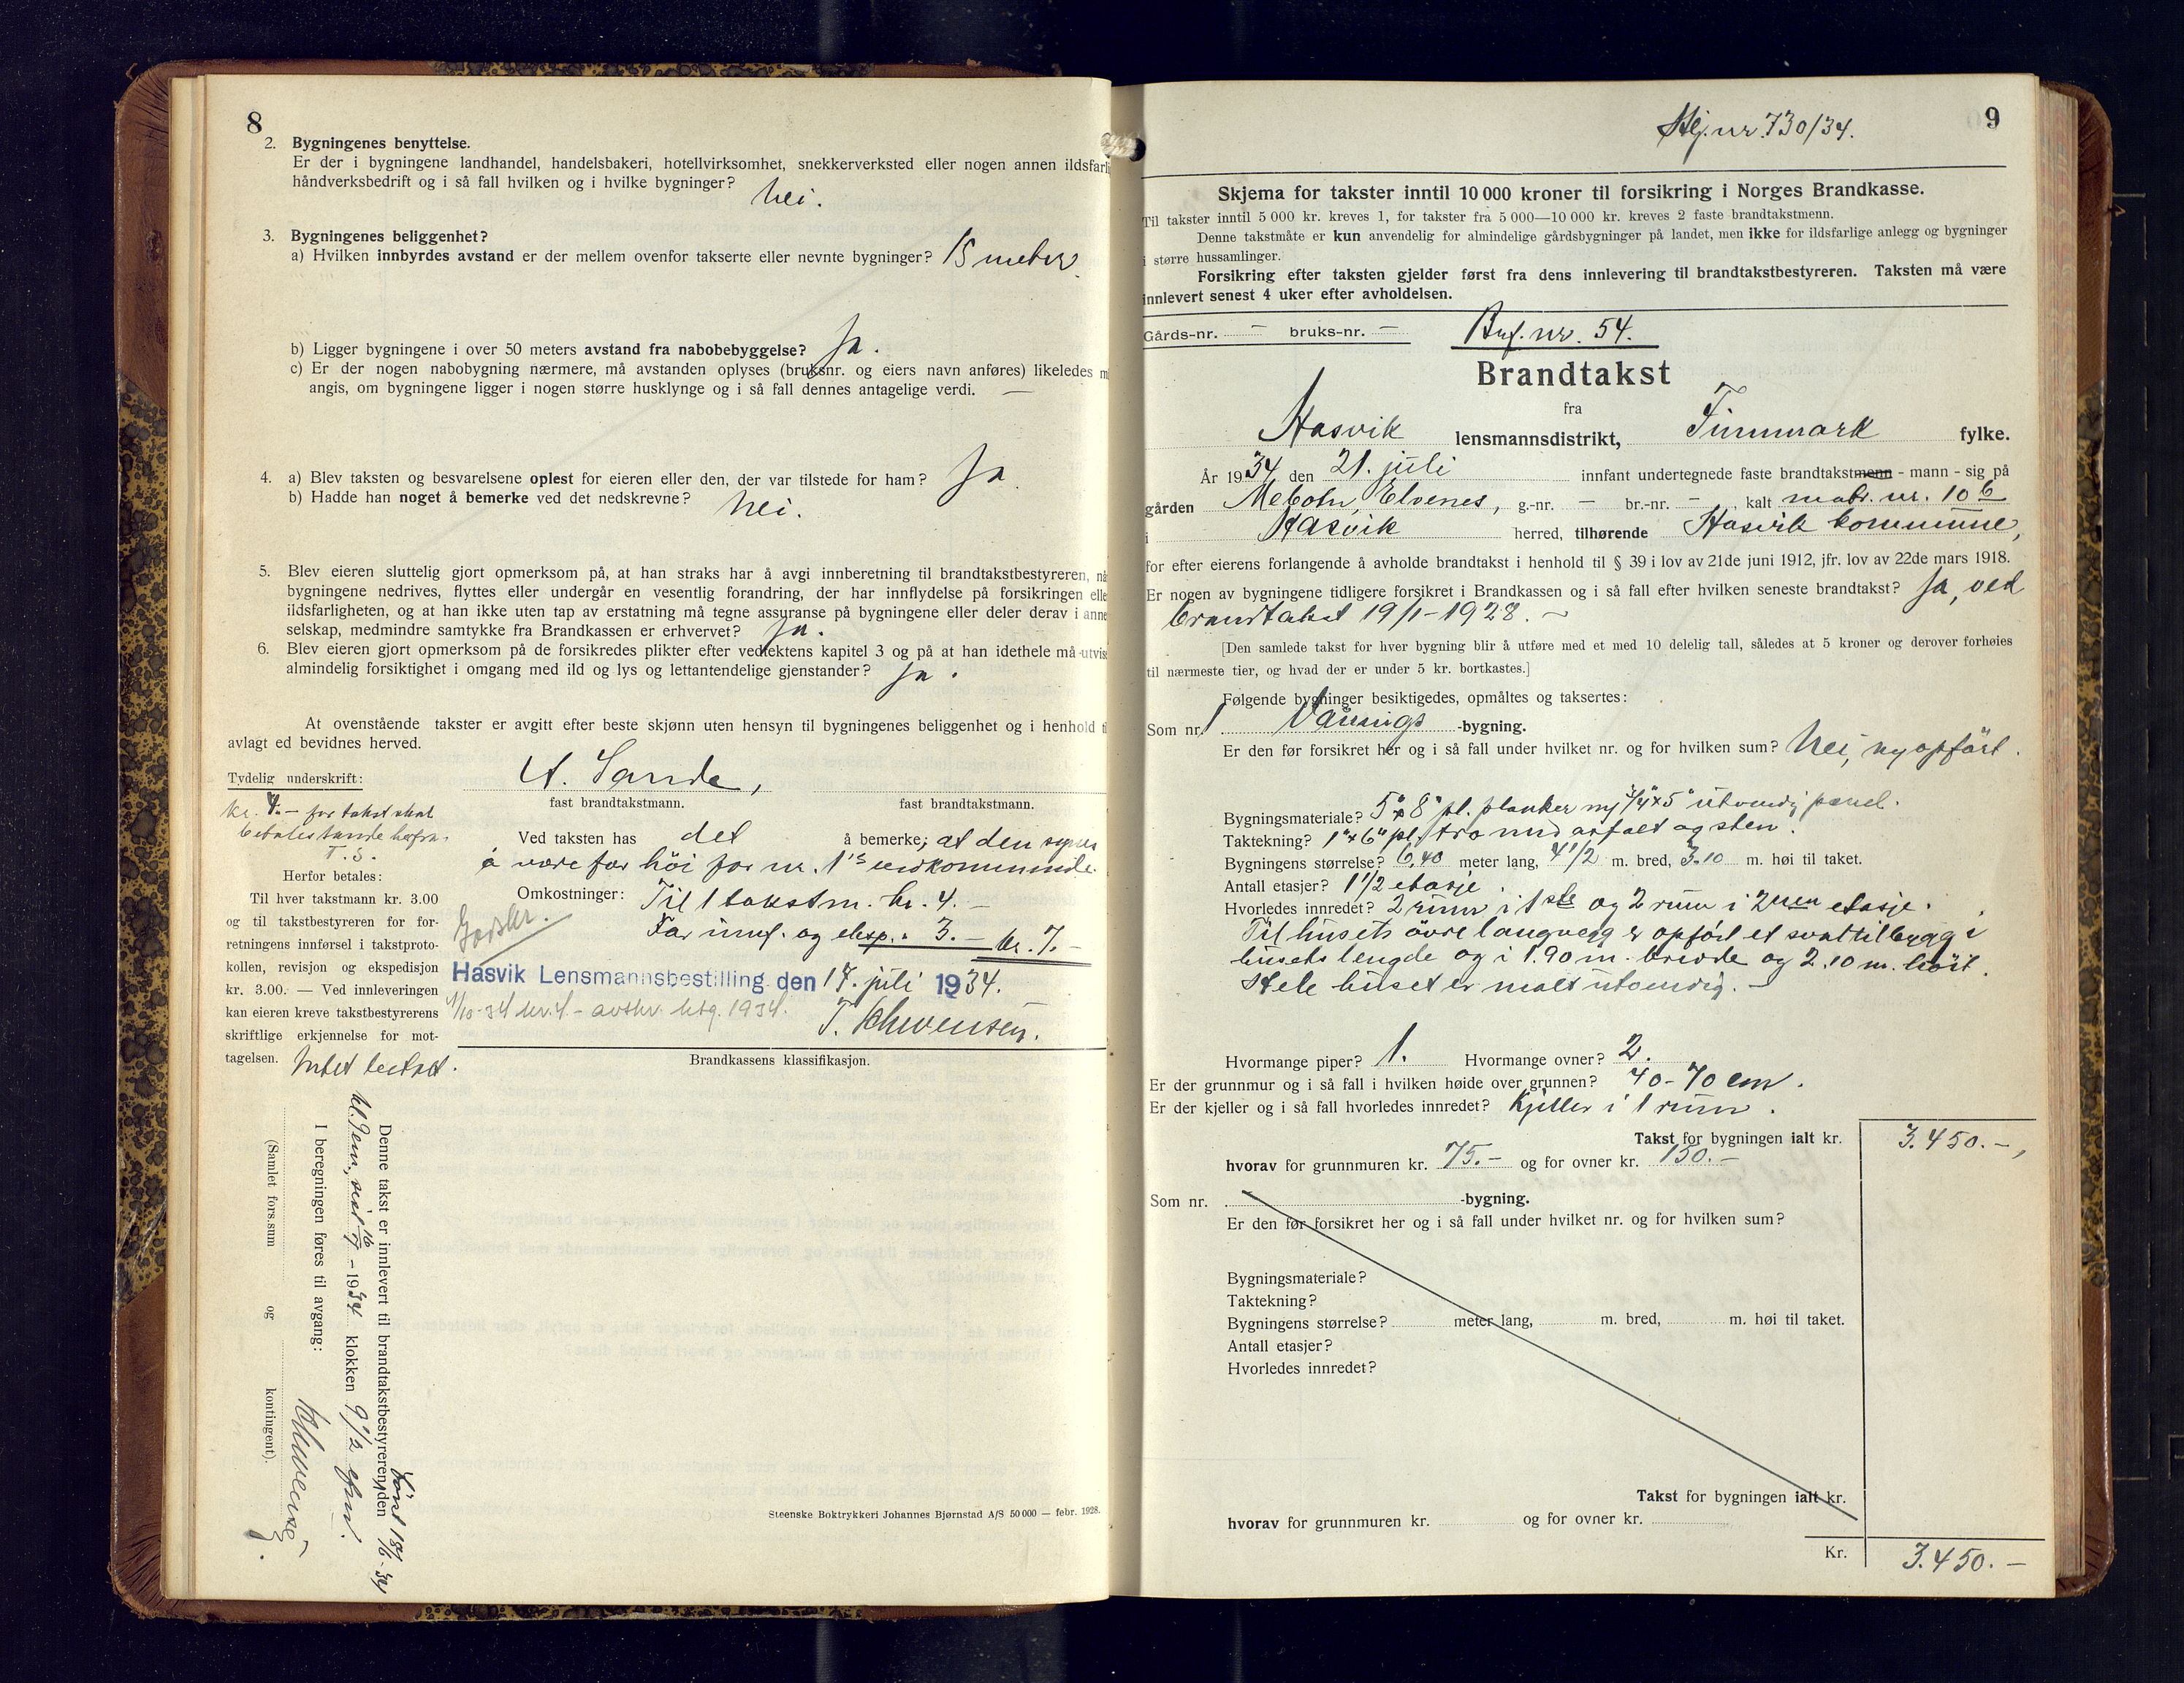 8
2. Bygningenes benyttelse.
Er der i bygningene landhandel, handelsbakeri, hotellvirksomhet, snekkerverksted eller nogen annen ildsfarli
håndverksbedrift og i så fall hvilken og i hvilke bygninger? Nei.
3. Bygningenes beliggenhet?
a) Hvilken innbyrdes avstand er der mellem ovenfor takserte eller nevnte bygninger? 15 meter
b) Ligger bygningene i over 50 meters avstand fra nabobebyggelse? Ja.
c) Er der nogen nabobygning nærmere, må avstanden oplyses (bruksnr. og eiers navn anføres) likeledes m
angis, om bygningene ligger i nogen større husklynge og i så fall dennes antagelige verdi. —
4. a) Blev taksten og besvarelsene oplest for eieren eller den, der var tilstede for ham? Ja.
b) Hadde han noget å bemerke ved det nedskrevne? Nei.
5. Blev eieren sluttelig gjort opmerksom på, at han straks har å avgi innberetning til brandtakstbestyreren, nå
bygningene nedrives, flyttes eller undergår en vesentlig forandring, der har innflydelse på forsikringen elle
ildsfarligheten, og at han ikke uten tap av erstatning må tegne assuranse på bygningene eller deler derav i anne
selskap, medmindre samtykke fra Brandkassen er erhvervet? Ja.
6. Blev eieren gjort opmerksom på de forsikredes plikter efter vedtektens kapitel 3 og på at han idethele må utvise
almindelig forsiktighet i omgang med ild og lys og lettantendelige gjenstander? Ja.
At ovenstående takster er avgitt efter beste skjønn uten hensyn til bygningenes beliggenhet og i henhold ti
avlagt ed bevidnes herved.
Tydelig underskrift: A. Sande,
fast brandtakstmann. fast brandtakstmann.
kr. 4.- for takst skal
betales Sande herfra.
T. S.
Ved taksten has det å bemerke; at den synes
å være for höi for nr. 1's vedkommende.
Herfor betales:
Til hver takstmann kr. 3.00
og til takstbestyreren for for-
retningens innførsel i takstproto-
kollen, revisjon og ekspedisjon
kr. 3.00. — Ved innleveringen
kan eieren kreve takstbestyrerens
skriftlige erkjennelse for mot-
tagelsen. Intet betalt.
Omkostninger: Til 1 takstm. kr. 4.-
For innf. og eksp. " 3.- kr. 7.-
Godkr.
Hasvik Lensmannsbestilling den 17. juli 1934.
1/10-34 kr. 4 - avskr. 1934.
T. Schwensen.
Brandkassens klassifikasjon.
Denne takst er innlevert til brandtakstbestyreren, den
16/7 - 1934 klokken 9 1/2 efm.
I beregningen føres til avgang:
Schwensen.
(Samlet fors.sum og kontingent).
Steenske Boktrykkeri Johannes Bjørnstad A/S 50 000 — febr. 1928.
9
nr. 730/34.
Skjema for takster inntil 10 000 kroner til forsikring i Norges Brandkasse.
Til takster inntil 5 000 kr. kreves 1, for takster fra 5 000—10 000 kr. kreves 2 faste brandtakstmenn.
Denne takstmåte er kun anvendelig for almindelige gårdsbygninger på landet, men ikke for ildsfarlige anlegg og bygninger
i større hussamlinger.
Forsikring efter taksten gjelder først fra dens innlevering til brandtakstbestyreren. Taksten må være
innlevert senest 4 uker efter avholdelsen.
Gårds-nr. — bruks-nr. — nr. 54.
Brandtakst
fra
Hasvik lensmannsdistrikt, Finnmark fylke.
År 1934 den 21. juli innfant undertegnede faste brandtakstmenn - mann - sig på
gården Mebotn, Elvenes, g.-nr. — br.-nr. — kalt matr. nr. 10 b
i Hasvik herred, tilhørende Hasvik kommune,
for efter eierens forlangende å avholde brandtakst i henhold til § 39 i lov av 21de juni 1912, jfr. lov av 22de mars 1918.
Er nogen av bygningene tidligere forsikret i Brandkassen og i så fall efter hvilken seneste brandtakst? Ja, ved
brandtakst 19/1-1928. —
[Den samlede takst for hver bygning blir å utføre med et med 10 delelig tall, således at 5 kroner og derover forhøies
til nærmeste tier, og hvad der er under 5 kr. bortkastes.]
Følgende bygninger besiktigedes, opmåltes og taksertes:
Som nr. 1 Vånings -bygning.
Er den før forsikret her og i så fall under hvilket nr. og for hvilken sum? Nei, nyopfört.
Bygningsmateriale? 5" x 8" pl. planker m/ 3/4" x 5" utvendig panel.
Taktekning? 1" x 6" pl. tro med asfalt og sten.
Bygningens størrelse? 6,40 meter lang, 4 1/2 m. bred, 3.10 m. høi til taket.
Antall etasjer? 1 1/2 etasje.
Hvorledes innredet? 2 rum i 1ste og 2 rum i 2nen etasje.
Til husets övre langvegg er opfört et svaltilbygg i
husets lengde og i 1.90 m. bredde og 2.10 m. höit.
Hele huset er malt utvendig. —
Hvormange piper? 1. Hvormange ovner? 2.
Er der grunnmur og i så fall i hvilken høide over grunnen? 40-70 cm.
Er der kjeller og i så fall hvorledes innredet? Kjeller i 1 rum.
Takst for bygningen ialt kr. 3.450.-,
hvorav for grunnmuren kr. 75.- og for ovner kr. 150.-
Som nr. -bygning.
Er den før forsikret her og i så fall under hvilket nr. og for hvilken sum?
Bygningsmateriale?
Taktekning?
Bygningens størrelse? meter lang, m. bred, m. høi til taket.
Antall etasjer?
Hvorledes innredet?
Takst for bygningen ialt kr.
hvorav for grunnmuren kr. og for ovner kr.
Kr. 3.450.-